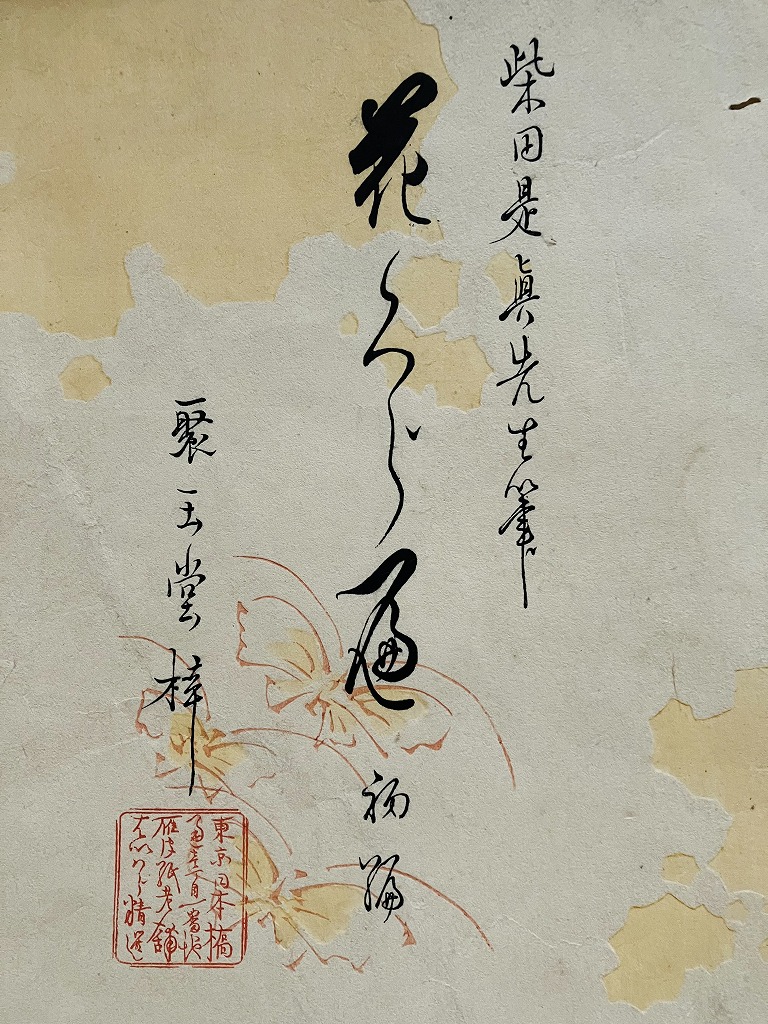 柴田是眞先生筆
花くら遍 初編
聚玉堂梓
東京日本橋
通壹丁目一番地
雁皮紙老舗
はいばら精選